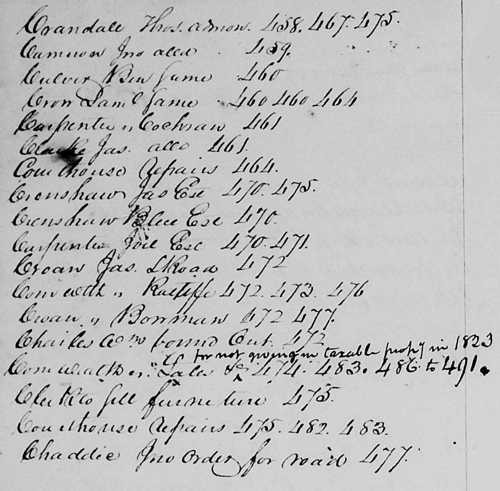 Crandale Thos. admor. 458. 467. 475.
Cameron Jno alld 459.
Culver Ben same 460
Cron Saml same 460 460 464
Carpenter vs Cochran 461
Clarke Jas. alld 461.
Courthouse repairs 464.
Crenshaw Jas Est 470. 475.
Crenshaw Est 470.
Carpenter Joel Est 470. 471.
Croan Jas. Road 472
Comwlth vs Ratliffe 472. 473. 476
Cowan vs Bowman 472 477.
Charles bound Out. 472
for not giving in taxable prop'y in 1823
Comwealth vs 474. 483. 486 to 491.
Clerk to sell furneture 475.
Courthouse repairs 475. 482. 483.
Chaddic Jno order for road 477.